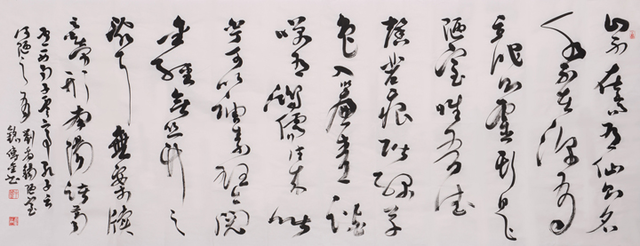 山不在高有仙则名
水不在深有
龙则灵斯是
陋室惟吾德
馨苔痕阶绿草
色入帘青谈
笑有鸿儒往来无白
丁可以调素琴阅
金经无丝竹之
乱耳无案牍
之劳形南阳诸葛
庐西蜀子云亭孔子云
何陋之有刘禹锡陋室
铭